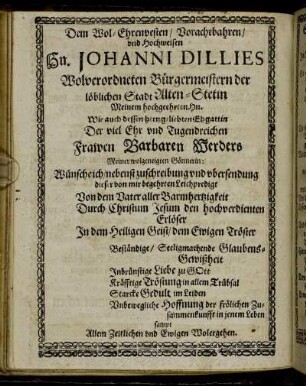 Dem Wol-Ehrenvesten/ Vorachtbahren/
vnd Hochweisen
Hn. JOHANNI DILLIES
Wolverordneten Bürgermeistern der
löblichen Stadt Alten-Stetin
Meinem hochgeehrten Hn.
Wie auch dessen hertzgeliebten Ehgattin
Der viel Ehr vnd Tugendreichen
Frawen Barbaren Werders
Meiner wolgeneigten Gönnerin:
Wünsche ich/ nebenst zuschreibung vnd vbersendung
dieser von mir begehrten Leichpredigt
Von dem Vater aller Barmhertzigkeit
Durch Christum Jesum den hochverdienten
Erlöser
In dem Heiligen Geist/ dem Ewigen Tröster
Beständige/ Seeligmachende Glaubens-
Gewißheit
Inbrünstige Liebe zu GOtt
Kräfftige Tröstung in allem Trübsal
Starcke Gedult im Leiden
Vnbewegliche Hoffnung der frölichen Zu-
sammenkunfft in jenem Leben
sampt
Allem Zeitlichen vnd Ewigen Wolergehen.